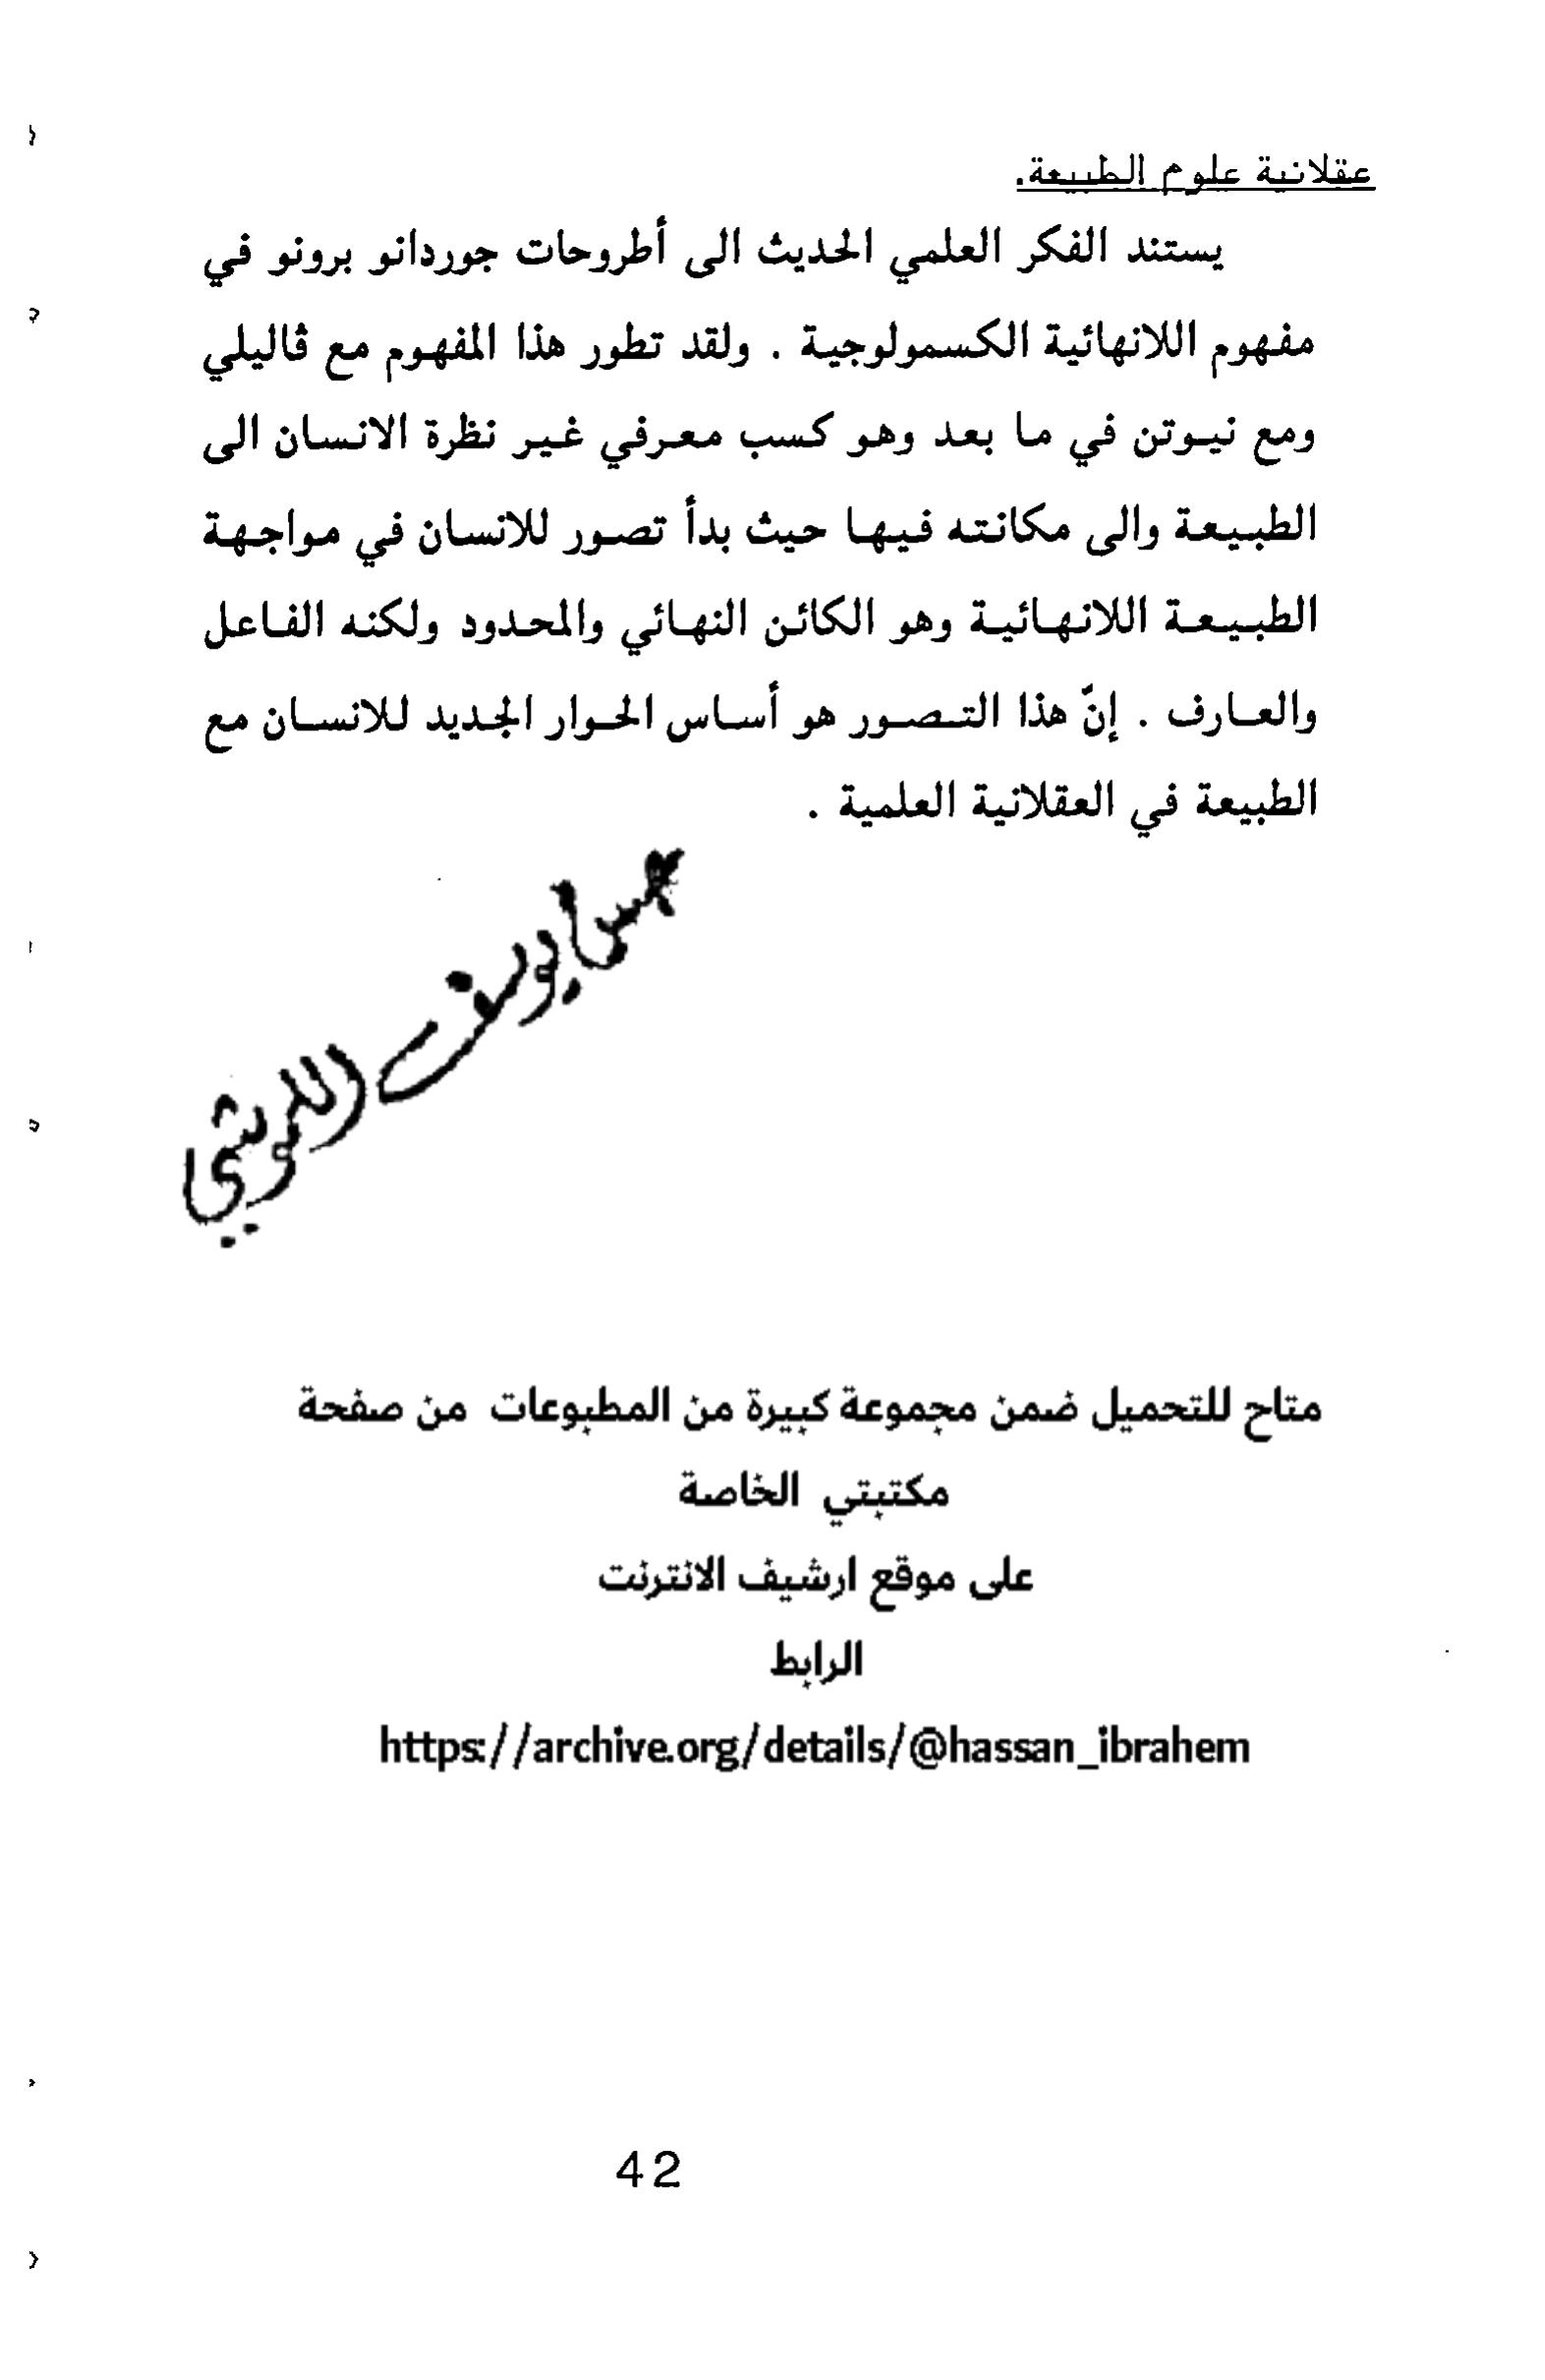 عقلانية علوم الطبيعة.
يستند الفكر العلمي الحديث الى أطروحات جوردانو برونو في
مفهوم اللانهائية الكسمولوجية . ولقد تطور هذا المفهوم مع ڤاليلي
ومع نيوتن في ما بعد وهو كسب معرفي غير نظرة الانسان الى
الطبيعة والى مكانته فيها حيث بدأ تصور للانسان في مواجهة
الطبيعة اللانهائية وهو الكائن النهائي والمحدود ولكنه الفاعل
والعارف . إنّ هذا التصور هو أساس الحوار الجديد للانسان مع
الطبيعة في العقلانية العلمية .
يوسف
متاح للتحميل ضمن مجموعة كبيرة من المطبوعات من صفحة
مكتبتي الخاصة
على موقع ارشيف الانترنت
الرابط
https://archive.org/details/@hassan_ibrahem
42